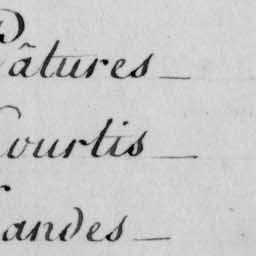 Pâtures_
Courtis_
Landes_